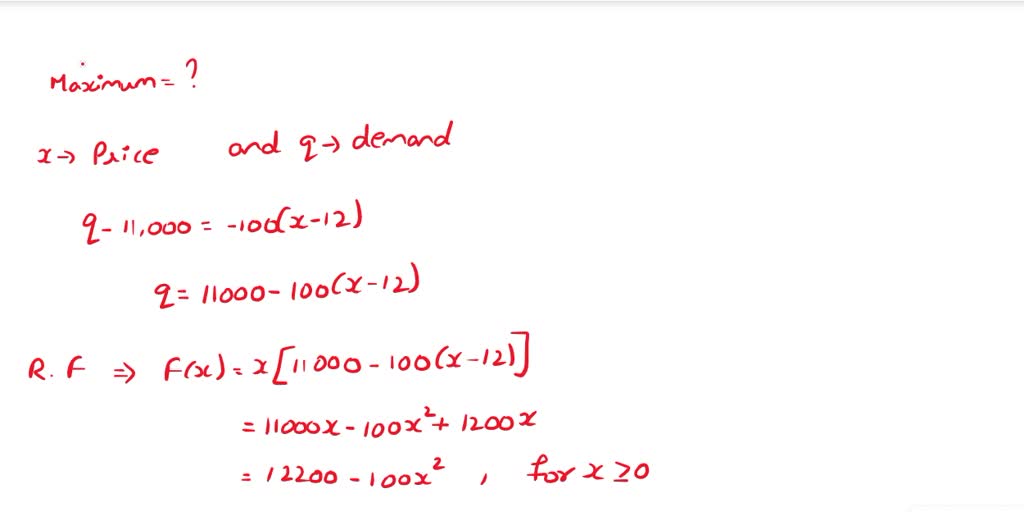 Maximum = ?
x → Price and q → demand
q - 11,000 = -100(x-12)
q = 11000 - 100(x-12)
R.F ⇒ F(x) = x[11000 - 100(x-12)]
= 11000x - 100x² + 1200x
= 12200 - 100x² , for x ≥ 0